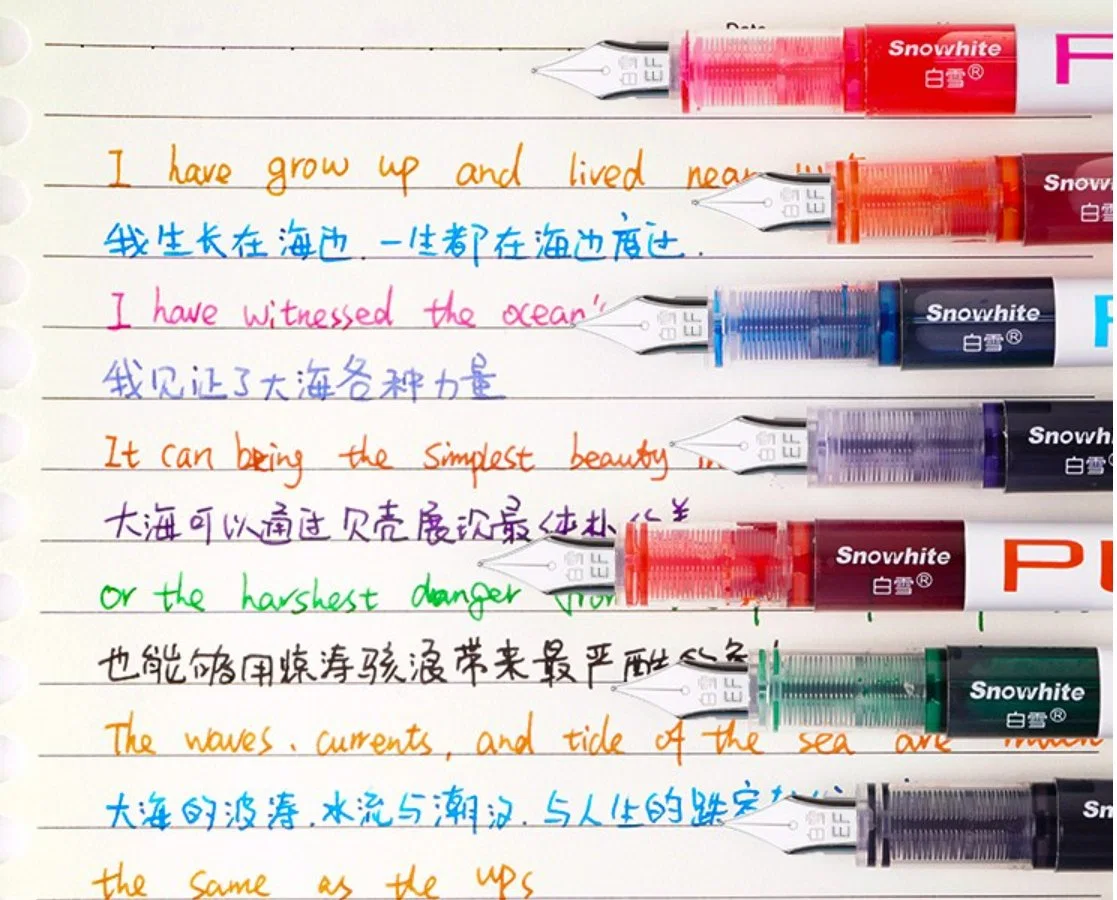 Snowhite
白雪®
I have grow up and lived near
Snow
白雪
我生长在海边.一生都在海边度过.
I have witnessed the ocean's
Snowhite
白雪®
我见证了大海各种力量
Snowh
白雪
It can being the simplest beauty
大海可以通过贝壳展现最体朴的美
Snowhite
白雪®
PU
or the harshest danger from
也能够用惊涛骇浪带来最严酷的危
Snowhite
白雪®
The waves. currents, and tide of the sea are much
大海的波涛.水流与潮汐.与人生的跌宕
Sn
the same as the ups
EF
EF
EF
EF
EF
EF
EF